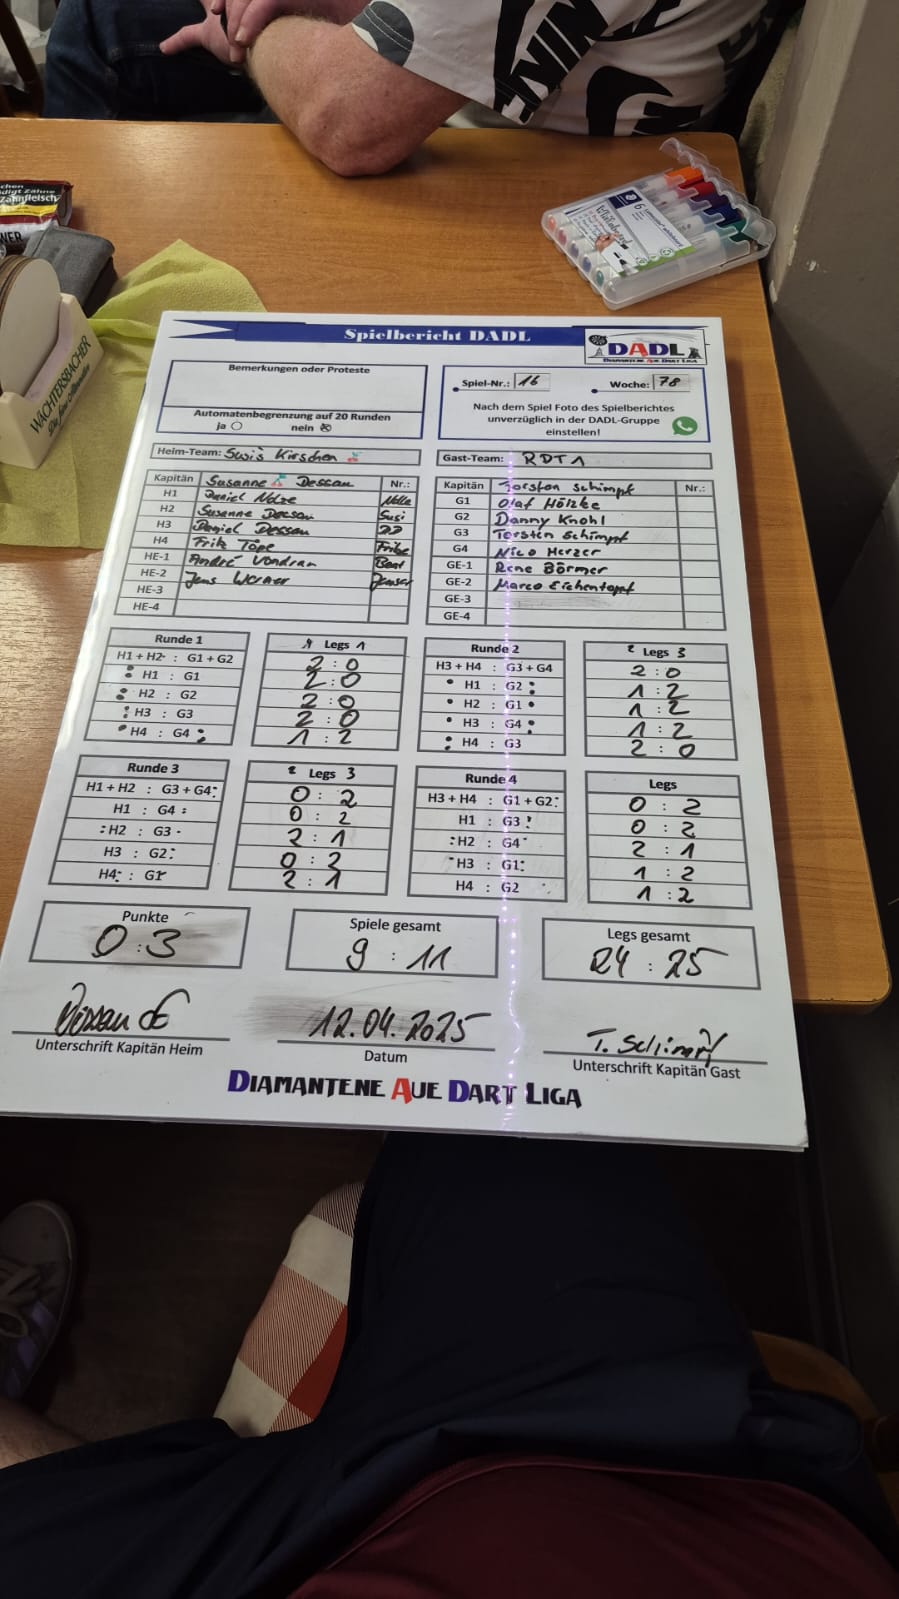 Zahnfleisch
WÄCHTERSBACHER
Spielbericht DADL
DADL
DIAMANTENE AUE DART LIGA
Bemerkungen oder Proteste
Automatenbegrenzung auf 20 Runden
ja nein
Spiel-Nr.: 16 Woche: 78
Nach dem Spiel Foto des Spielberichtes
unverzüglich in der DADL-Gruppe
einstellen!
Heim-Team: Susi's Kirschen
Gast-Team: RDT1
Kapitän Susanne Dessau Nr.:
H1 Daniel Nolze Nolle
H2 Susanne Dessau Susi
H3 Daniel Dessau DD
H4 Fritz Töpe
HE-1 André Vondran
HE-2 Jens Werner
HE-3
HE-4
Kapitän Torsten Schimpf Nr.:
G1 Olaf Hölzke
G2 Danny Knohl
G3 Torsten Schimpf
G4 Nico Herzer
GE-1 Rene Börmer
GE-2 Marco Eichentopf
GE-3
GE-4
Runde 1 Legs 1
H1 + H2 : G1 + G2 2 : 0
H1 : G1 2 : 0
H2 : G2 2 : 0
H3 : G3 2 : 0
H4 : G4 1 : 2
Runde 2 Legs 3
H3 + H4 : G3 + G4 2 : 0
H1 : G2 1 : 2
H2 : G1 1 : 2
H3 : G4 1 : 2
H4 : G3 2 : 0
Runde 3 Legs 3
H1 + H2 : G3 + G4 0 : 2
H1 : G4 0 : 2
H2 : G3 2 : 1
H3 : G2 0 : 2
H4 : G1 2 : 1
Runde 4 Legs
H3 + H4 : G1 + G2 0 : 2
H1 : G3 0 : 2
H2 : G4 2 : 1
H3 : G1 1 : 2
H4 : G2 1 : 2
Punkte
0 : 3
Spiele gesamt
9 : 11
Legs gesamt
24 : 25
Dessau
Unterschrift Kapitän Heim
12.04.2025
Datum
T. Schimpf
Unterschrift Kapitän Gast
DIAMANTENE AUE DART LIGA